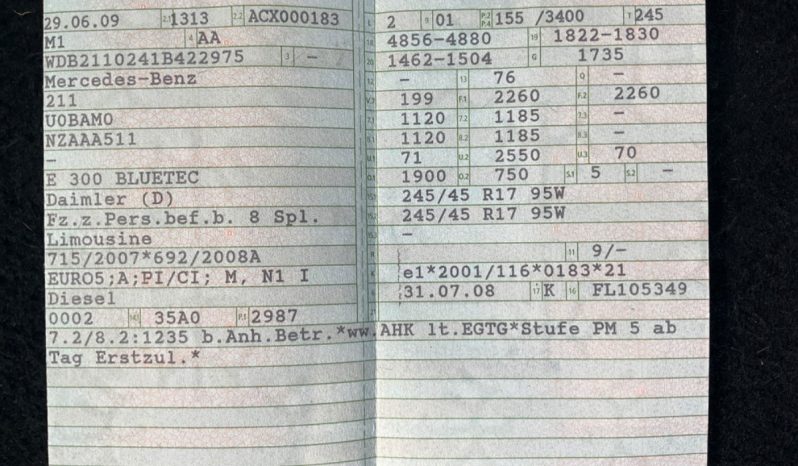 29.06.09 2.1 1313 2.2 ACX000183
M1 4 AA
WDB2110241B422975 3 –
Mercedes-Benz
211
U0BAM0
NZAAA511
–
E 300 BLUETEC
Daimler (D)
Fz.z.Pers.bef.b. 8 Spl.
Limousine
715/2007*692/2008A
EURO5;A;PI/CI; M, N1 I
Diesel
0002 35A0 P.1 2987
L 2 9 01 P.2 P.4 155 /3400 T 245
18 4856-4880 19 1822-1830
20 1462-1504 G 1735
12 – 13 76 Q –
V.7 199 F.1 2260 F.2 2260
7.1 1120 7.2 1185 7.3 –
8.1 1120 8.2 1185 8.3 –
U.1 71 U.2 2550 U.3 70
O.1 1900 O.2 750 S.1 5 S.2 –
15.1 245/45 R17 95W
15.2 245/45 R17 95W
15.3 –
R 11 9/–
K e1*2001/116*0183*21
6 31.07.08 17 K 16 FL105349
21
7.2/8.2:1235 b.Anh.Betr.*ww.AHK lt.EGTG*Stufe PM 5 ab
Tag Erstzul.*